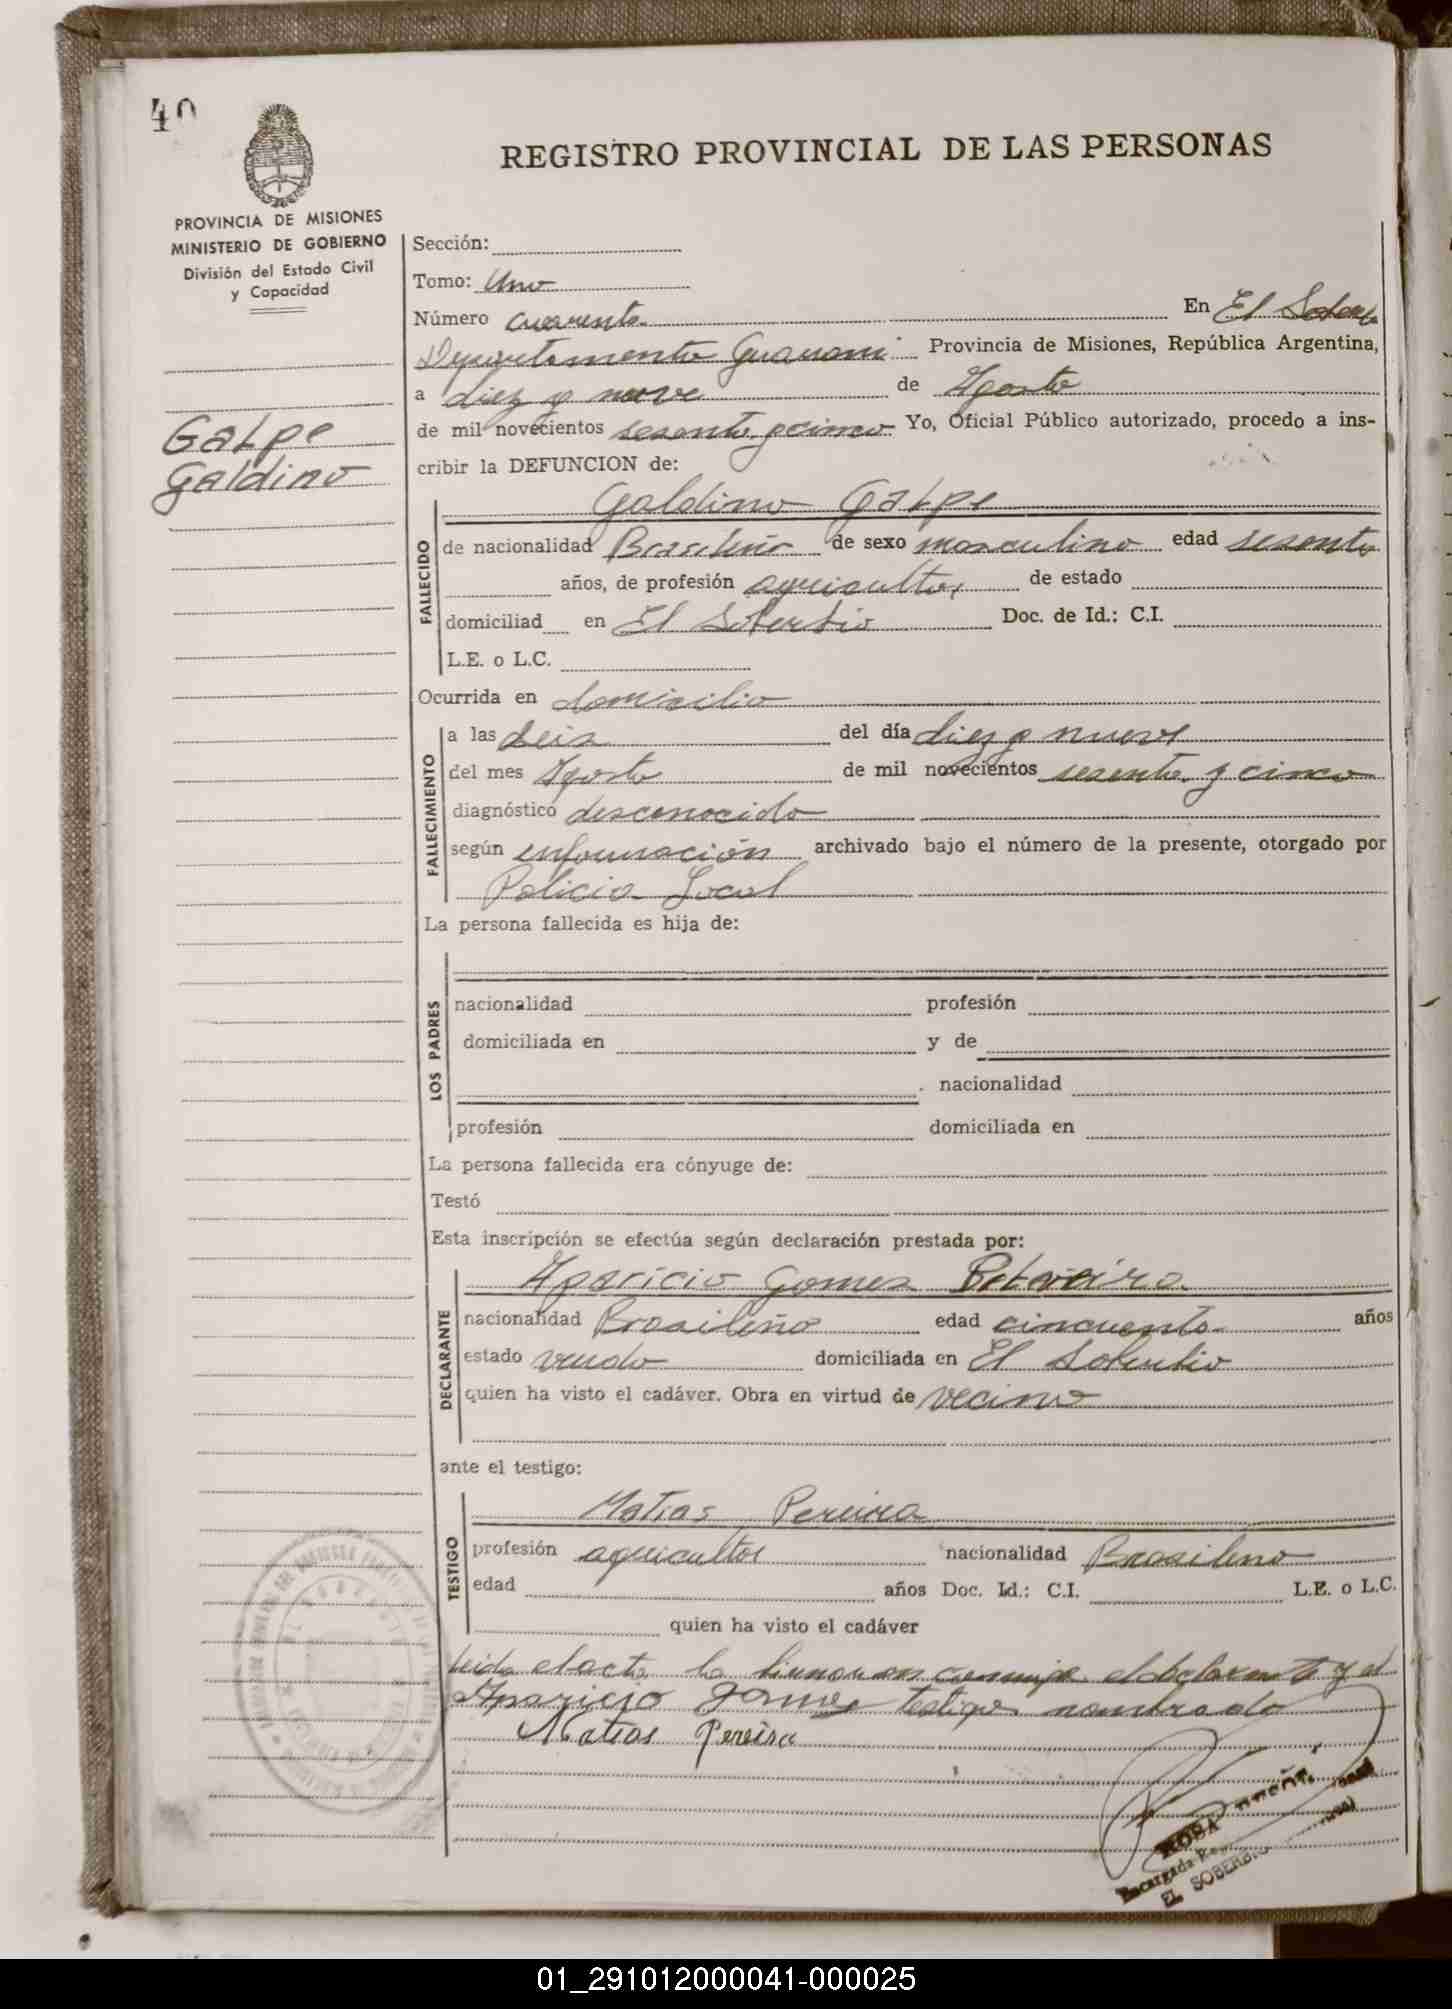 40
REGISTRO PROVINCIAL DE LAS PERSONAS
PROVINCIA DE MISIONES
MINISTERIO DE GOBIERNO
División del Estado Civil
y Capacidad
Galpe
Galdino
Sección:
Tomo: Uno
Número cuarenta En El Soberb
Departamento Guarani Provincia de Misiones, República Argentina,
a diez y nueve de Agosto
de mil novecientos sesenta y cinco Yo, Oficial Público autorizado, procedo a ins-
cribir la DEFUNCION de:
Galdino Galpe
FALLECIDO
de nacionalidad Brasileño de sexo masculino edad sesenta
años, de profesión agricultor de estado
domiciliad en El Soberbio Doc. de Id.: C.I.
L.E. o L.C.
Ocurrida en domicilio
FALLECIMIENTO
a las seis del día diez y nueve
del mes Agosto de mil novecientos sesenta y cinco
diagnóstico desconocido
según información archivado bajo el número de la presente, otorgado por
Policia Local
La persona fallecida es hija de:
LOS PADRES
nacionalidad profesión
domiciliada en y de
nacionalidad
profesión domiciliada en
La persona fallecida era cónyuge de:
Testó
Esta inscripción se efectúa según declaración prestada por:
Aparicio Gomes
DECLARANTE
nacionalidad Brasileño edad cincuenta años
estado viudo domiciliada en El Soberbio
quien ha visto el cadáver. Obra en virtud de vecino
ante el testigo:
Matias Pereira
TESTIGO
profesión agricultor nacionalidad Brasileno
edad años Doc. Id.: C.I. L.E. o L.C.
quien ha visto el cadáver
leida el acta la firmaron conmigo el declarante y el
Aparicio Gomes testigo nombrado
Matias Pereira
ROSA
Encargada
EL SOBERBIO
01_291012000041-000025